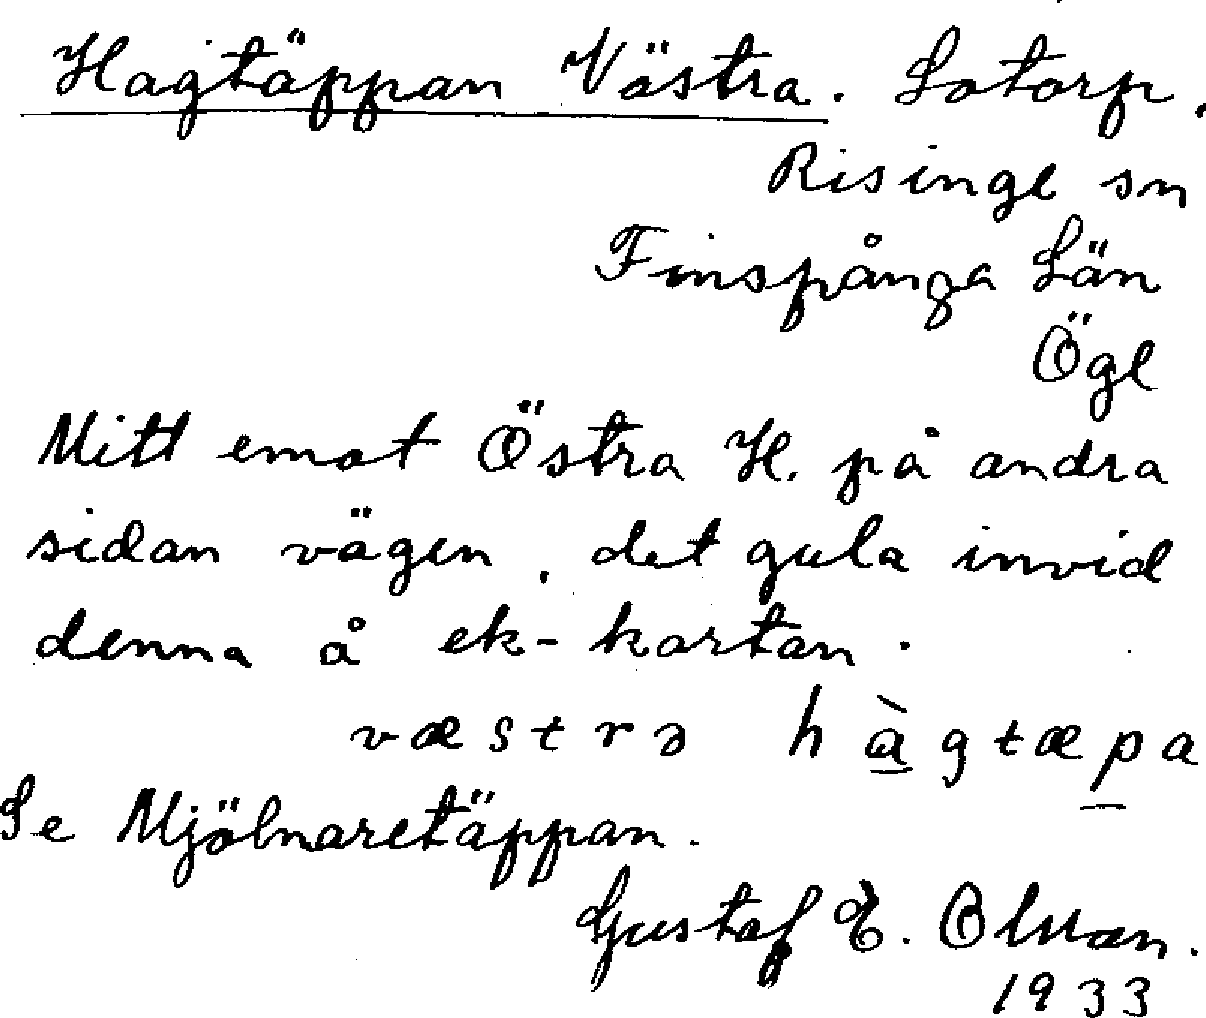 Hagtäppan Västra. Lotorp.
Risinge sn
Finspånga Län
Ögl
Mitt emot Östra H. på andra
sidan vägen, det gula invid
denna å ek-kartan.
væstrə hàgtæpa
Se Mjölnaretäppan.
Gustaf E. Olman.
1933